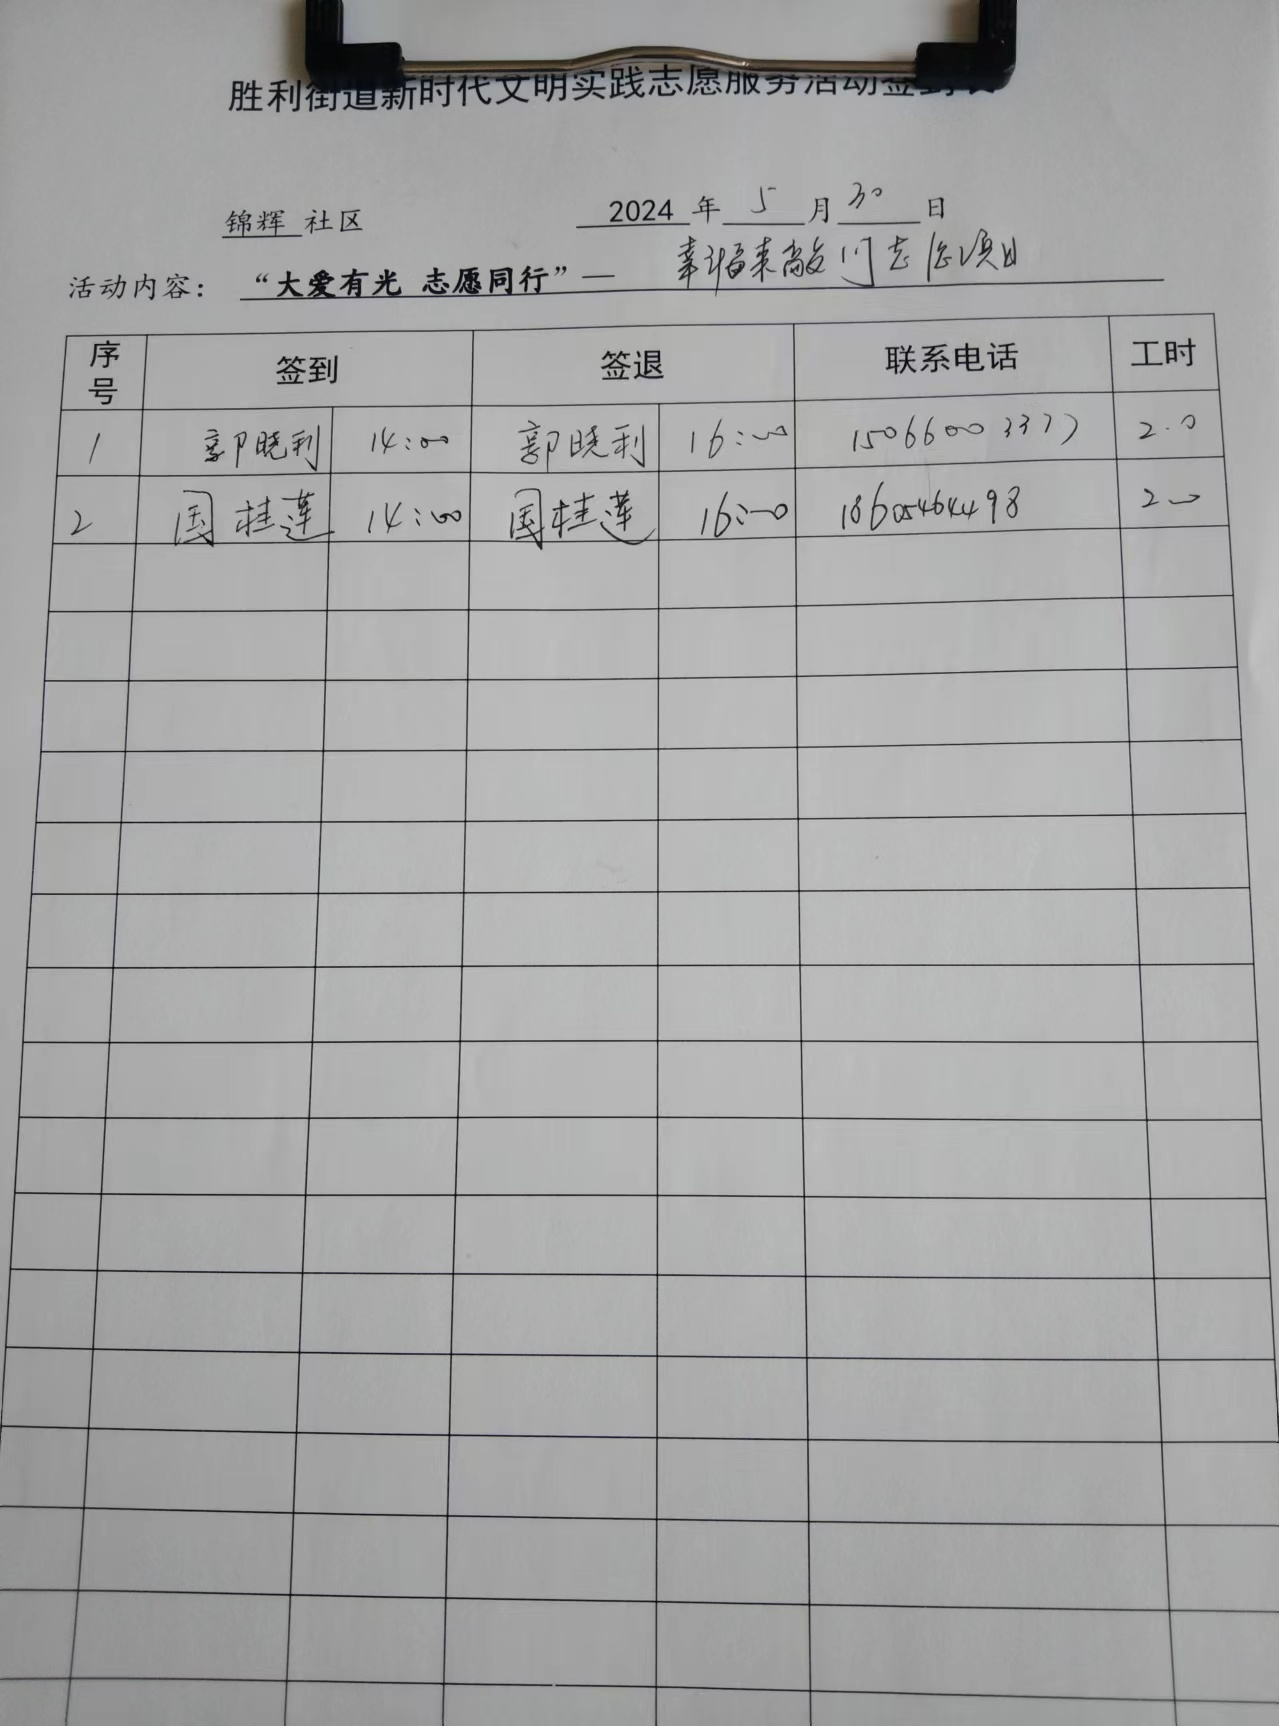 胜利街道新时代文明实践志愿服务活动签到表
锦辉 社区 2024 年 5 月 30 日
活动内容： “大爱有光 志愿同行”— 幸福来敲门志愿项目
序号 签到 签退 联系电话 工时
1 郭晓利 14:00 郭晓利 16:00 15066003377 2.0
2 国桂莲 14:00 国桂莲 16:00 18605464498 2.0